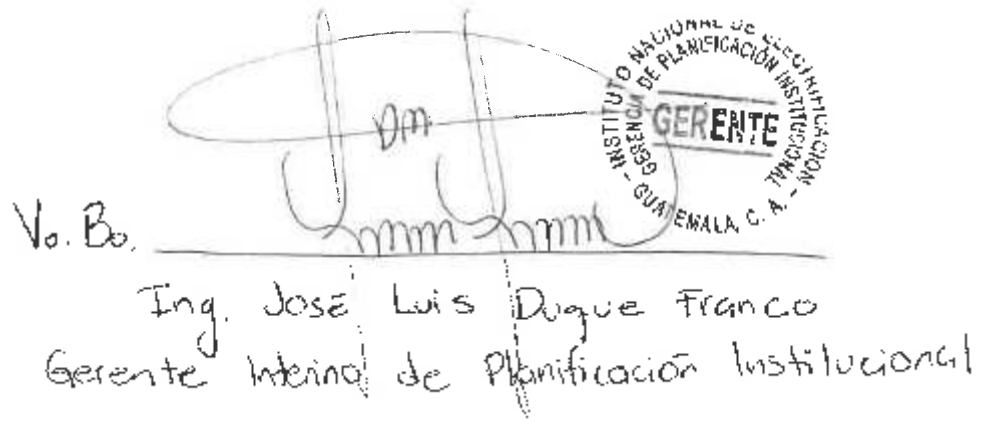 INSTITUTO NACIONAL DE ELECTRIFICACION
GERENCIA DE PLANIFICACIÓN INSTITUCIONAL
GERENTE
- GUATEMALA, C. A. -
DM
Vo. Bo.
Ing. José Luis Duque Franco
Gerente Interino de Planificación Institucional